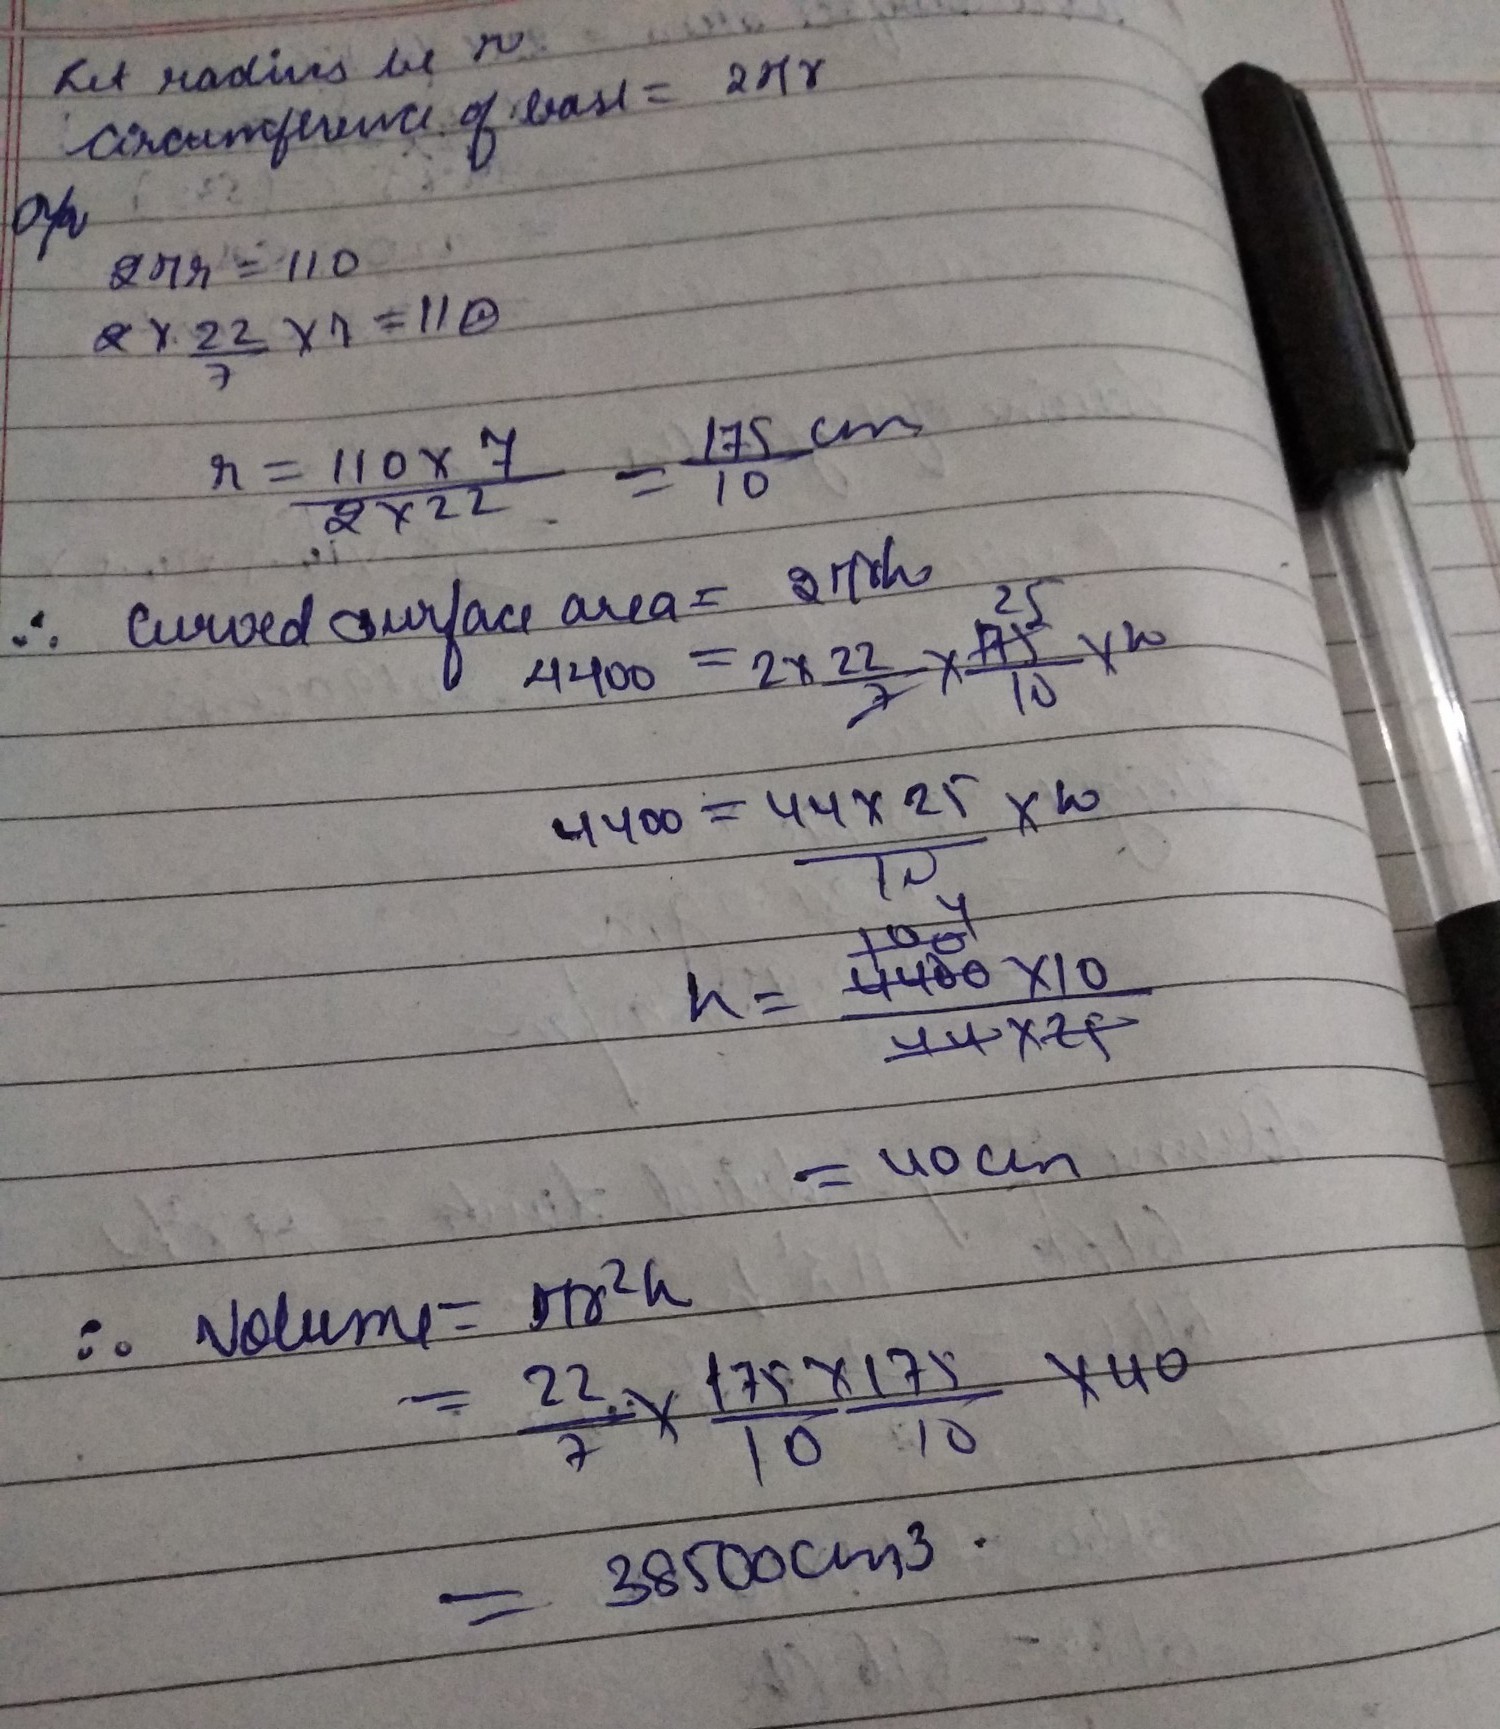 Let radius be r
Circumference of base = 2πr
2πr = 110
2 × 22/7 × r = 110
r = 110 × 7 / 2 × 22 = 175/10 cm
∴ Curved surface area = 2πrh
4400 = 2 × 22/7 × 175/10 × h
25
4400 = 44 × 25 / 10 × h
100 4
h = 4400 × 10 / 44 × 25
= 40 cm
∴ Volume = πr²h
= 22/7 × 175/10 × 175/10 × 40
= 38500 cm3.